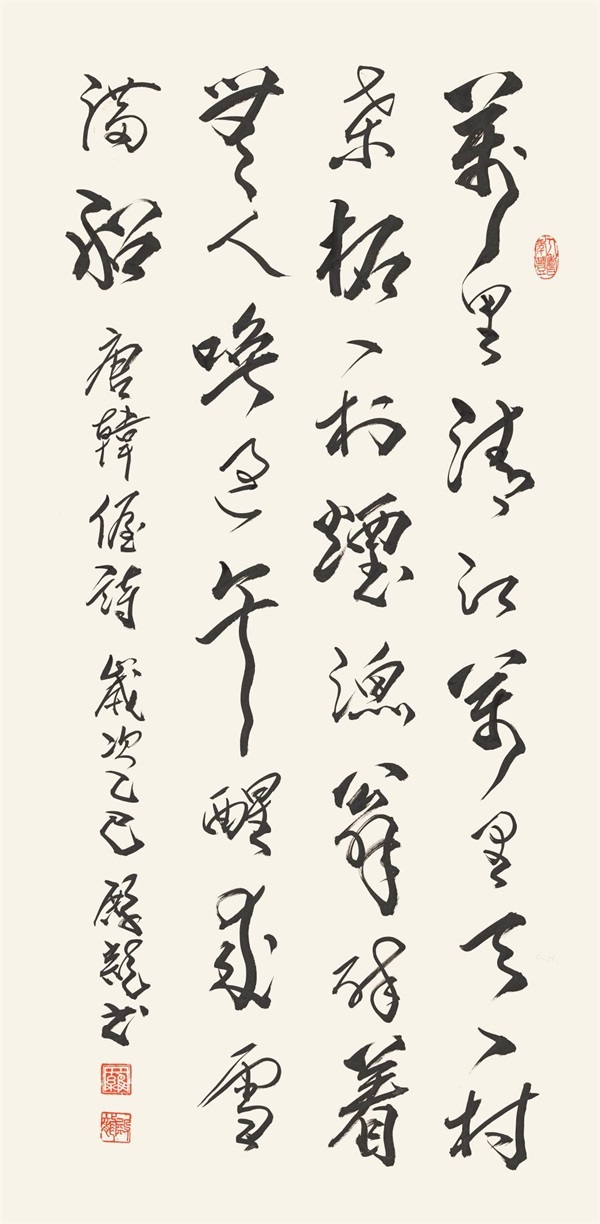 萬里清江萬里天一村
桑柘一村煙漁翁醉着
無人喚過午醒來雪
滿船 唐韓偓詩 歲次乙巳 龍書